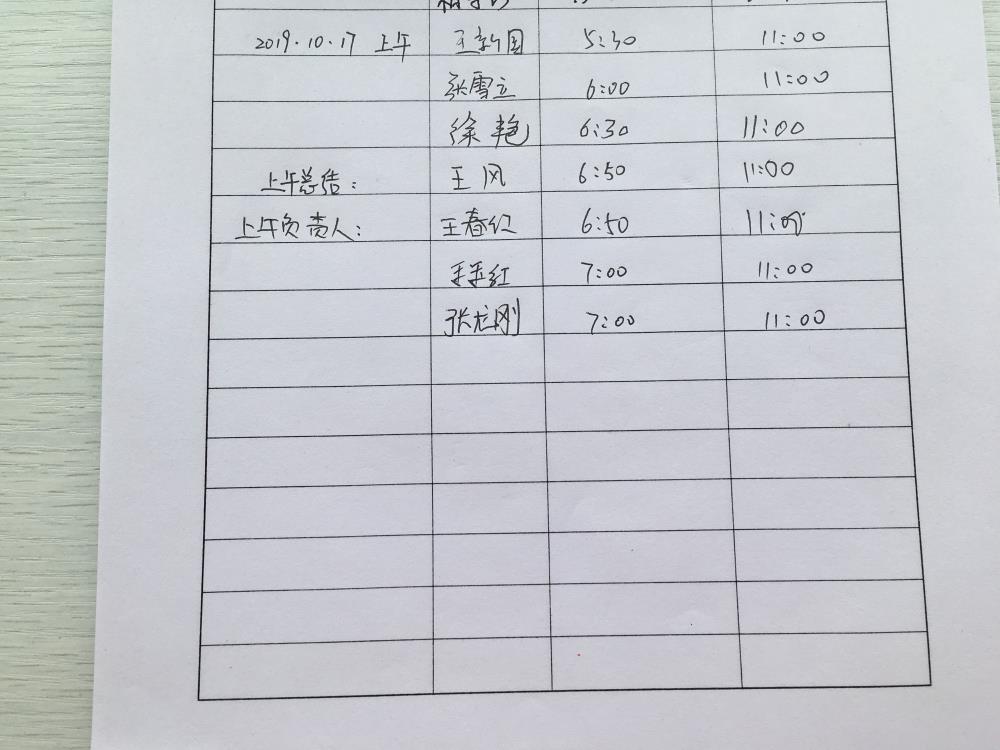 2019.10.17 上午 王新国 5:30 11:00
张雪立 6:00 11:00
徐艳 6:30 11:00
上午总结: 王风 6:50 11:00
上午负责人: 王春红 6:50 11:00
红 7:00 11:00
张龙刚 7:00 11:00